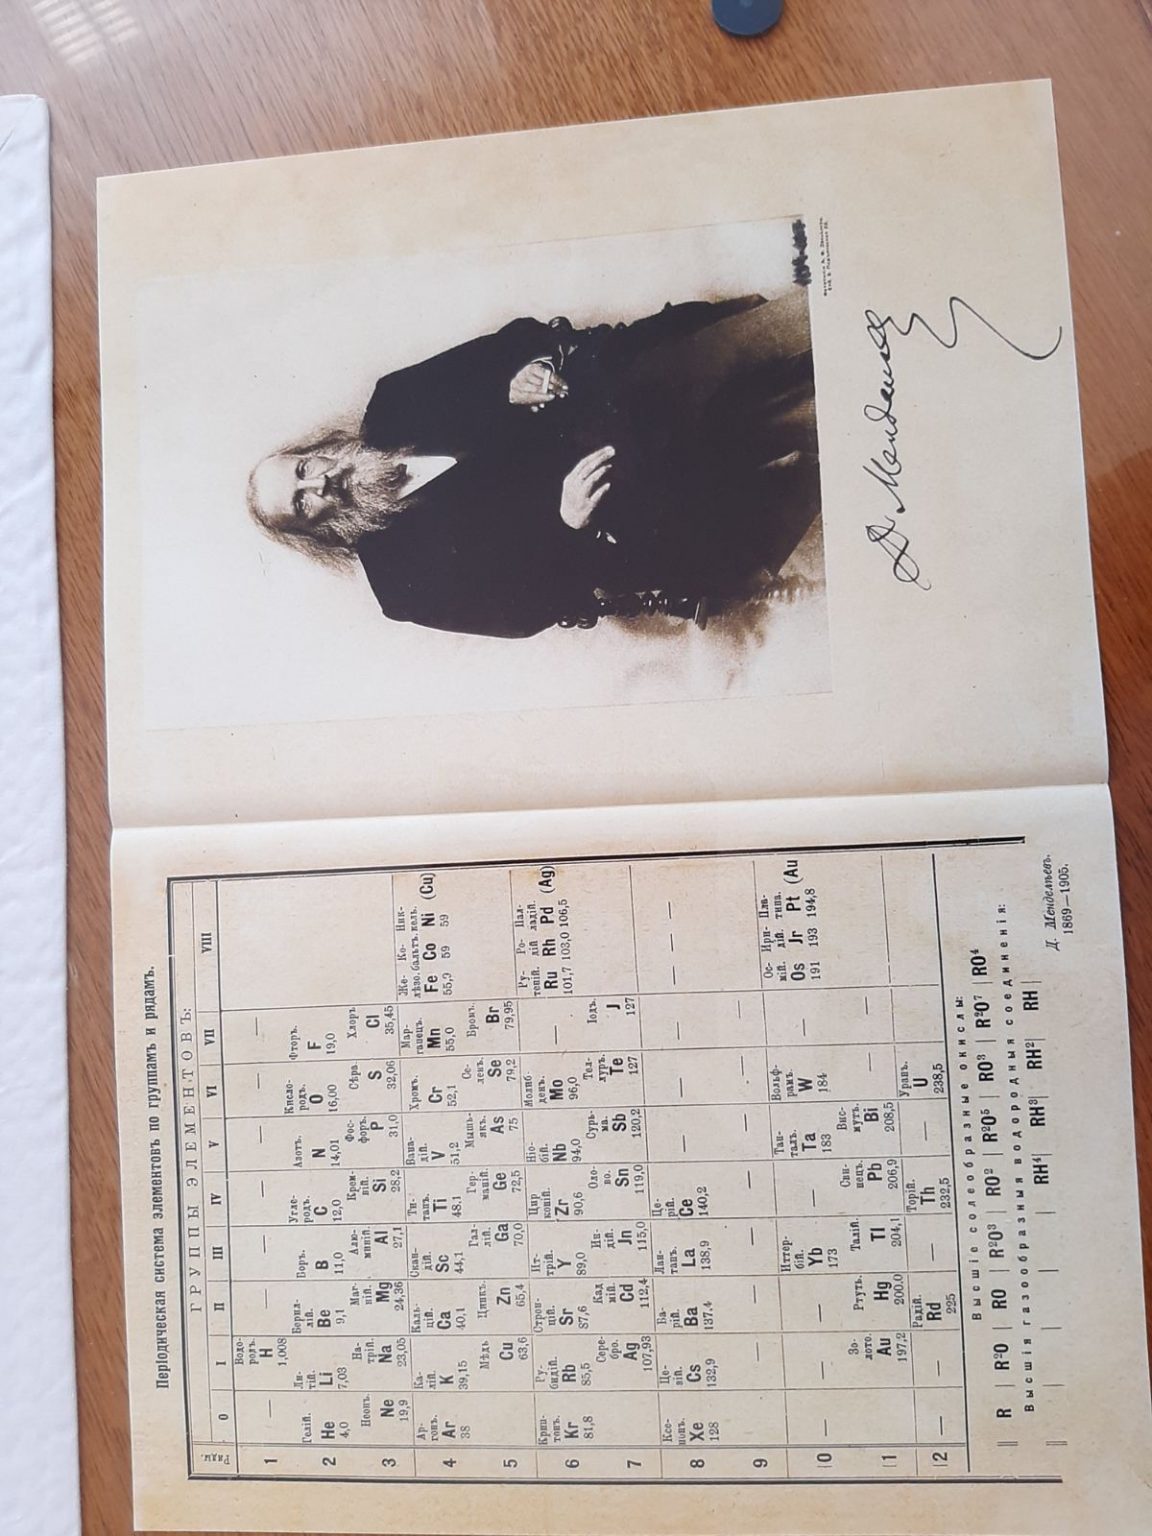 Періодическая система элементовъ по группамъ и рядамъ.
ГРУППЫ ЭЛЕМЕНТОВЪ:
0 I II III IV V VI VII VIII
1 — Водородъ. H 1,008 — — — — — —
2 Гелій. He 4,0 Литій. Li 7,03 Бериллій. Be 9,1 Боръ. B 11,0 Углеродъ. C 12,0 Азотъ. N 14,01 Кислородъ. O 16,00 Фторъ. F 19,0
3 Неонъ. Ne 19,9 Натрій. Na 23,05 Магній. Mg 24,36 Алюминій. Al 27,1 Кремній. Si 28,2 Фосфоръ. P 31,0 Сѣра. S 32,06 Хлоръ Cl 35,45
4 Аргонъ. Ar 38 Калій. K 39,15 Кальцій. Ca 40,1 Скандій. Sc 44,1 Титанъ. Ti 48.1 Ванадій. V 51,2 Хромъ. Cr 52,1 Марганецъ. Mn 55,0 Желѣзо. Fe 55,9 Кобальтъ. Co 59 Никкель. Ni 59 (Cu)
5 Мѣдь Cu 63,6 Цинкъ. Zn 65,4 Галлій. Ga 70,0 Германій. Ge 72,5 Мышьякъ. As 75 Селенъ. Se 79,2 Бромъ. Br 79,95
6 Криптонъ. Kr 81,8 Рубидій. Rb 85,5 Стронцій. Sr 87,6 Иттрій. Y 89,0 Цирконій. Zr 90,6 Ніобій. Nb 94,0 Молибденъ. Mo 96,0 — Рутеній. Ru 101,7 Родій Rh 103,0 Палладій. Pd 106,5 (Ag)
7 Серебро. Ag 107,93 Кадмій. Cd 112,4 Индій. Jn 115,0 Олово. Sn 119,0 Сурьма. Sb 120,2 Теллуръ. Te 127 Іодъ. J 127
8 Ксенонъ. Xe 128 Цезій. Cs 132,9 Барій. Ba 137.4 Лантанъ. La 138,9 Церій. Ce 140,2 — — — — — —
9 — — — — — — —
10 — — — Иттербій. Yb 173 — Танталъ. Ta 183 Вольфрамъ. W 184 — Осмій. Os 191 Иридій. Jr 193 Платина. Pt 194,8 (Au
11 Золото. Au 197,2 Ртуть. Hg 200.0 Таллій. Tl 204,1 Свинецъ. Pb 206,9 Висмутъ. Bi 208,5 — —
12 — — Радій. Rd 225 — Торій. Th 232,5 — Уранъ. U 238,5
Высшіе солеобразные окислы:
R R²O RO R²O³ RO² R²O⁵ RO³ R²O⁷ RO⁴
Высшія газообразныя водородныя соединенія:
RH⁴ RH³ RH² RH
Д. Менделѣевъ.
1869—1905.
Д. Менделѣевъ